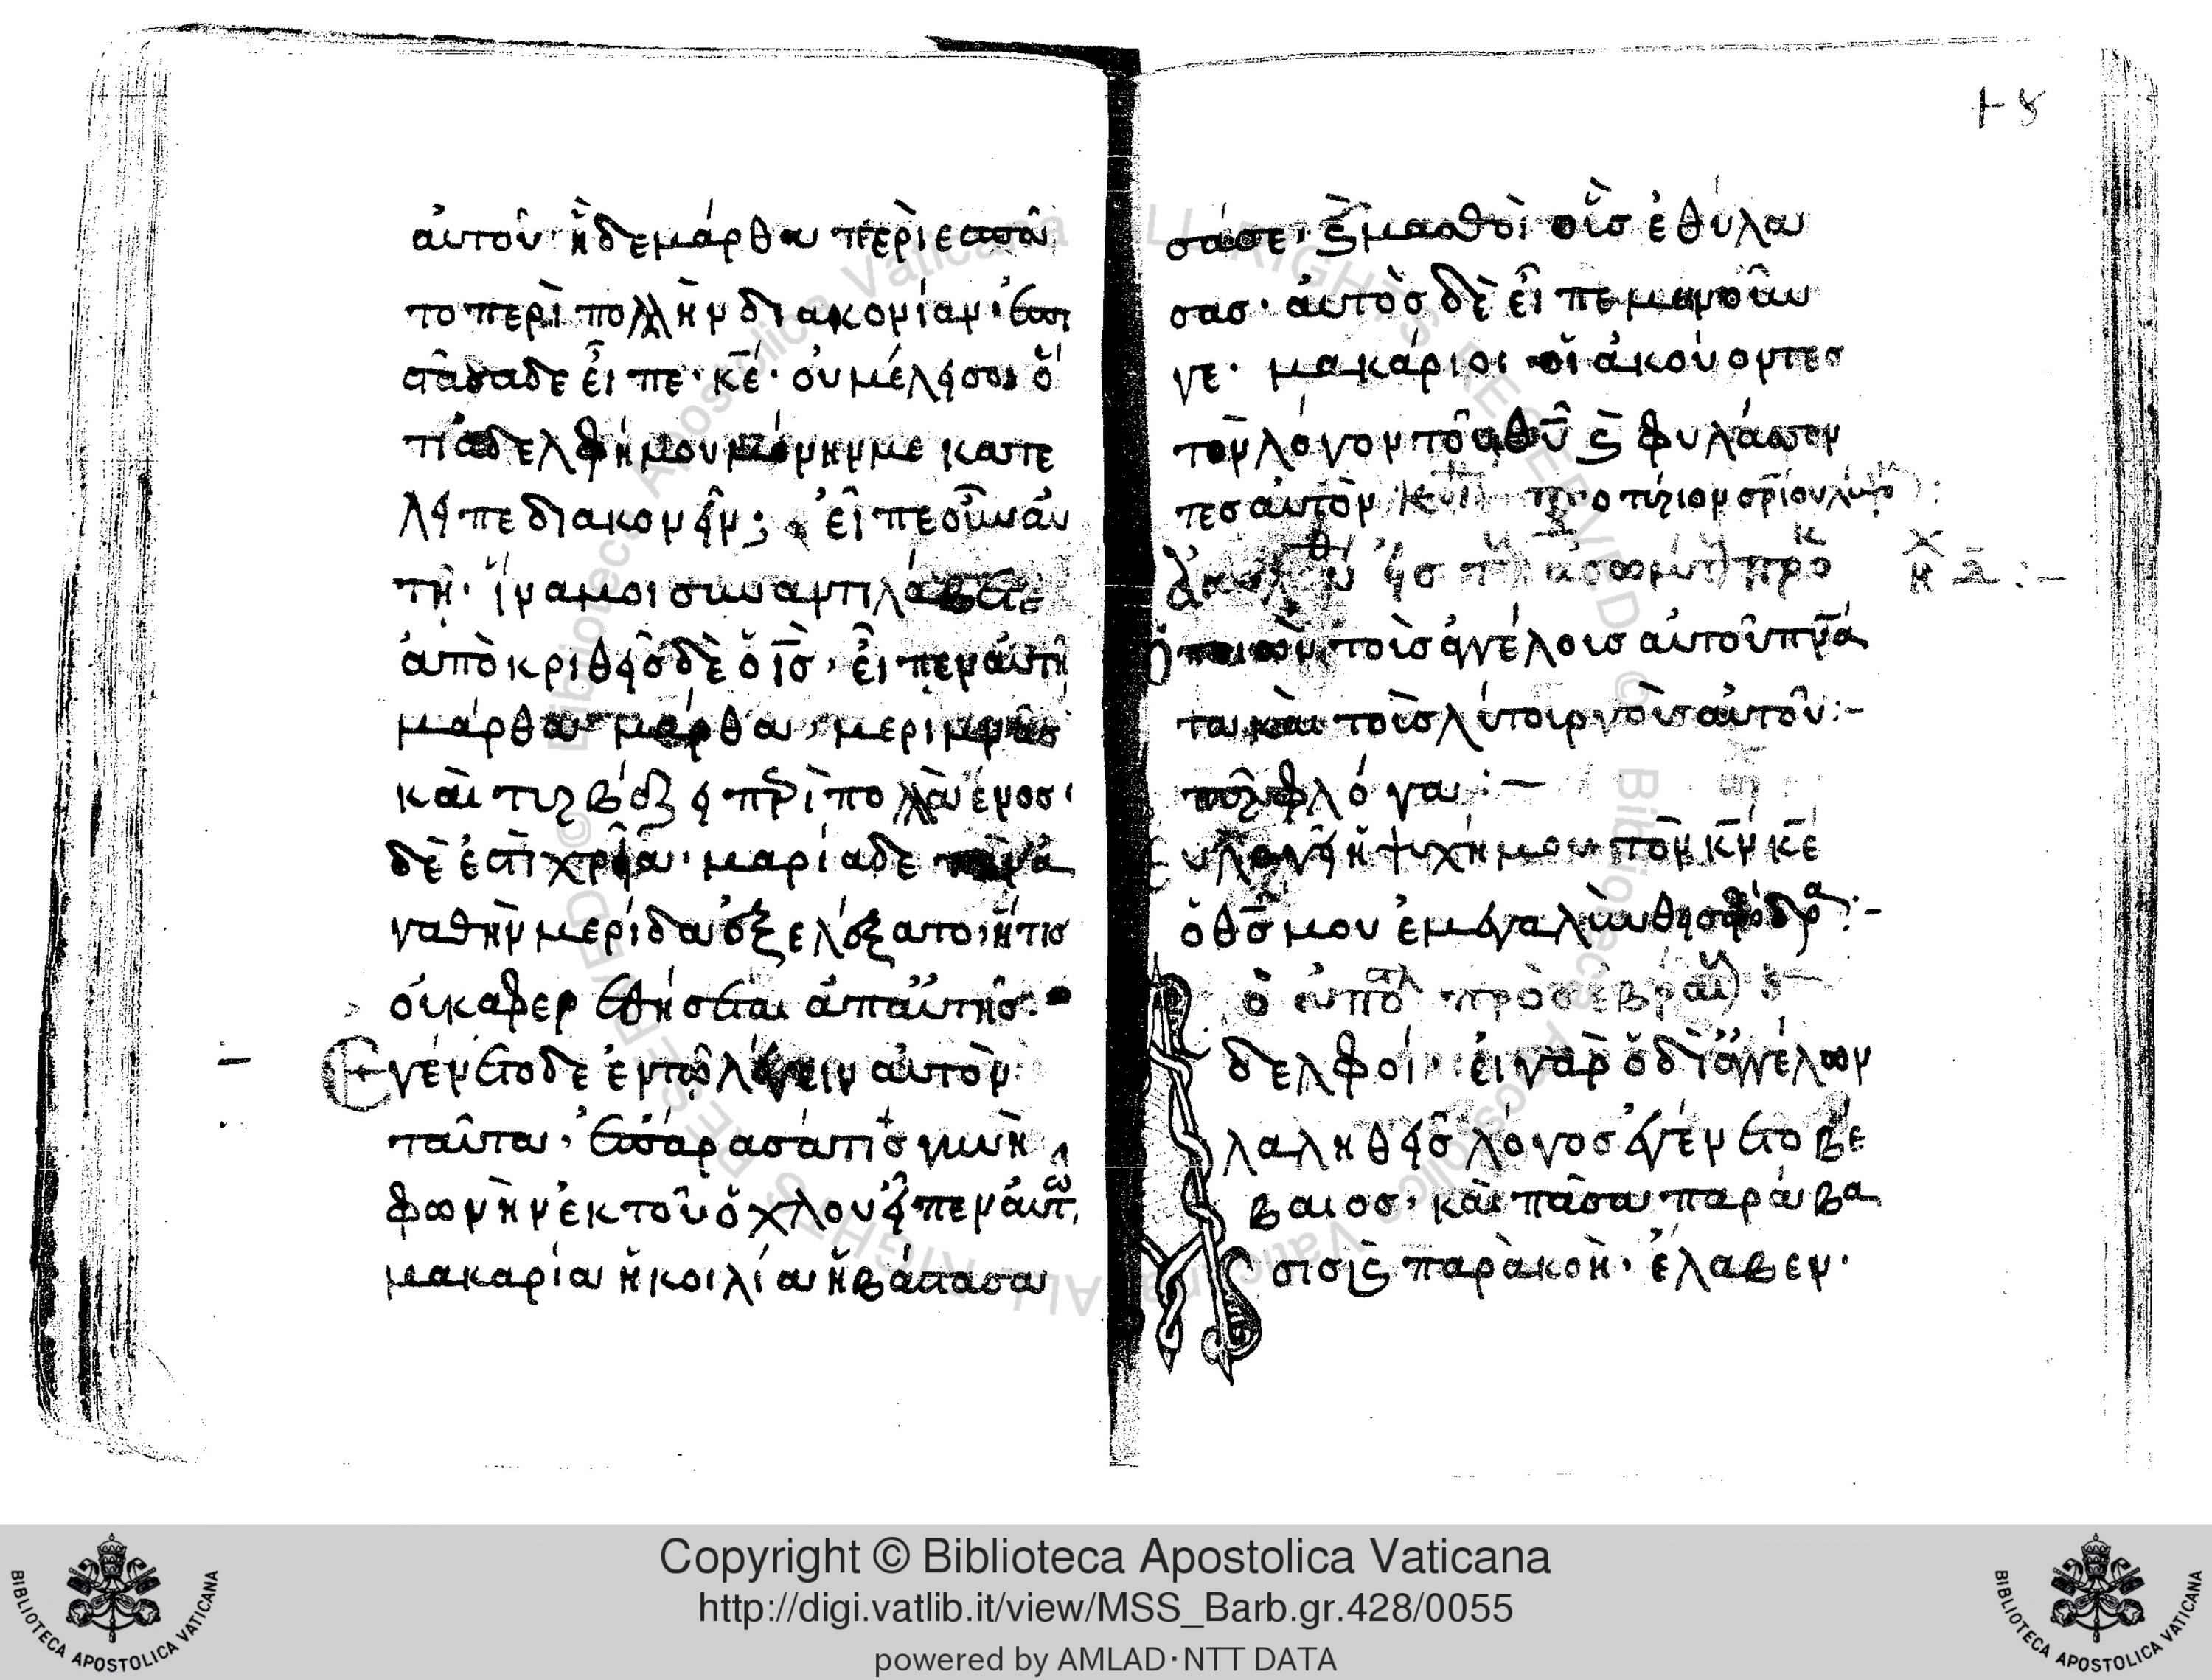 αὐτοῦ ἡ δὲ μάρθα περιεσπᾶ
το περὶ πολλὴν διακονίαν· ἐπι
στᾶσα δὲ εἶπε· κ̅ε̅· οὐ μέλει σοι ὅ
τι ἀδελφή μου μόνην με κατέ
λειπε διακονεῖν; εἶπε οὖν αὐ
τῇ· ἵνα μοι συναντιλάβεται
ἀποκριθεὶς δὲ ὁ ι̅ς̅· εἶπεν αὐτῇ
μάρθα μάρθα, μεριμνᾶς
καὶ τυρβάζει περὶ πολλὰ ἑνὸς
δὲ ἐστὶ χρεία· μαρία δὲ τὴν ἀ
γαθὴν μερίδα ἐξελέξατο, ἥτις
οὐκ ἀφερεθήσεται ἀπ αὐτῆς:
Εγένετο δὲ ἐν τῷ λέγειν αὐτὸν
ταῦτα, ἐπάρασά τις γυνὴ
φωνὴν ἐκ τοῦ ὄχλου εἶπεν αὐτῶ,
μακαρία ἡ κοιλία ἡ βαστάσα
σάσε, ϗ μασθοὶ οἷς ἐθήλα
σας· αὐτὸς δὲ εἶπε μενοῦν
γε· μακάριοι οἱ ἀκούοντες
τὸν λόγον τοῦ θ̅υ̅ ϗ φυλάσσον
τες αὐτὸν
ὁ ποιῶν τοὺς ἀγγέλους αὐτοῦ πν̅α
τα καὶ τοὺς λειτουργοὺς αὐτοῦ:-
πυρὸς φλόγα:-
εὐλόγει ἡ ψυχή μου τὸν κ̅ν̅ κ̅ε̅
ὁ θ̅ς̅ μου ἐμεγαλύνθης σφόδρα:-
ὁ ἀπόστολ πρὸς ἑβραί
δελφοί· εἰ γὰρ ὁ δι ἀγγέλων
λαληθεὶς λόγος ἐγένετο βέ
βαιος, καὶ πᾶσα παράβα
σις ϗ παρακοὴ· ἔλαβεν·
Copyright © Biblioteca Apostolica Vaticana
http://digi.vatlib.it/view/MSS_Barb.gr.428/0055
powered by AMLAD·NTT DATA
BIBLIOTECA APOSTOLICA VATICANA
BIBLIOTECA APOSTOLICA VATICANA